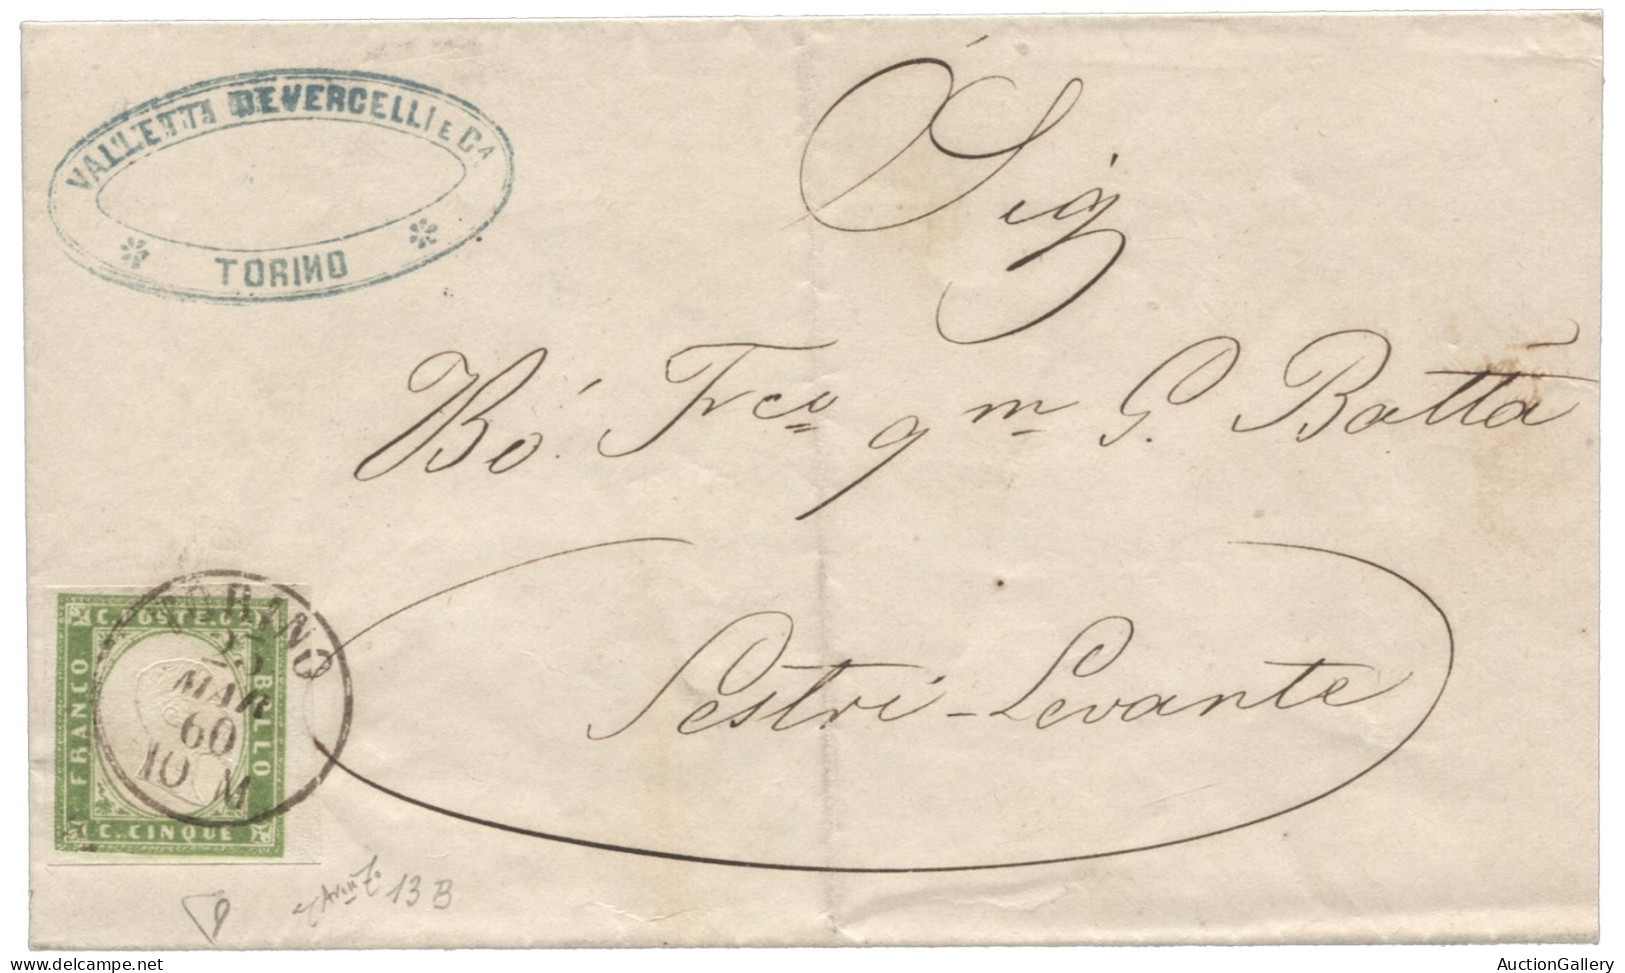 VALLETTI DEVERCELLI E Cᴬ
TORINO
Sig
Bò Frco qm G. Batta
Sestri-Levante
C. POSTE. C
FRANCO
BOLLO
C. CINQUE
TORINO
23
MAR
60
10 M
13 B
delcampe.net
AuctionGallery